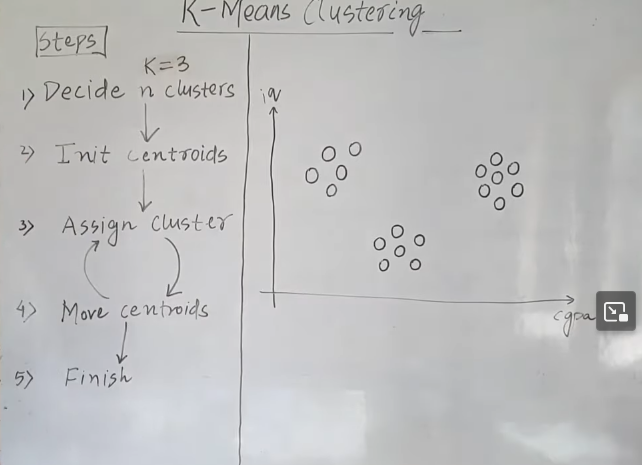 K-Means Clustering
Steps
K=3
1) Decide n clusters
2) Init centroids
3) Assign cluster
4) Move centroids
5) Finish
iq
cgpa